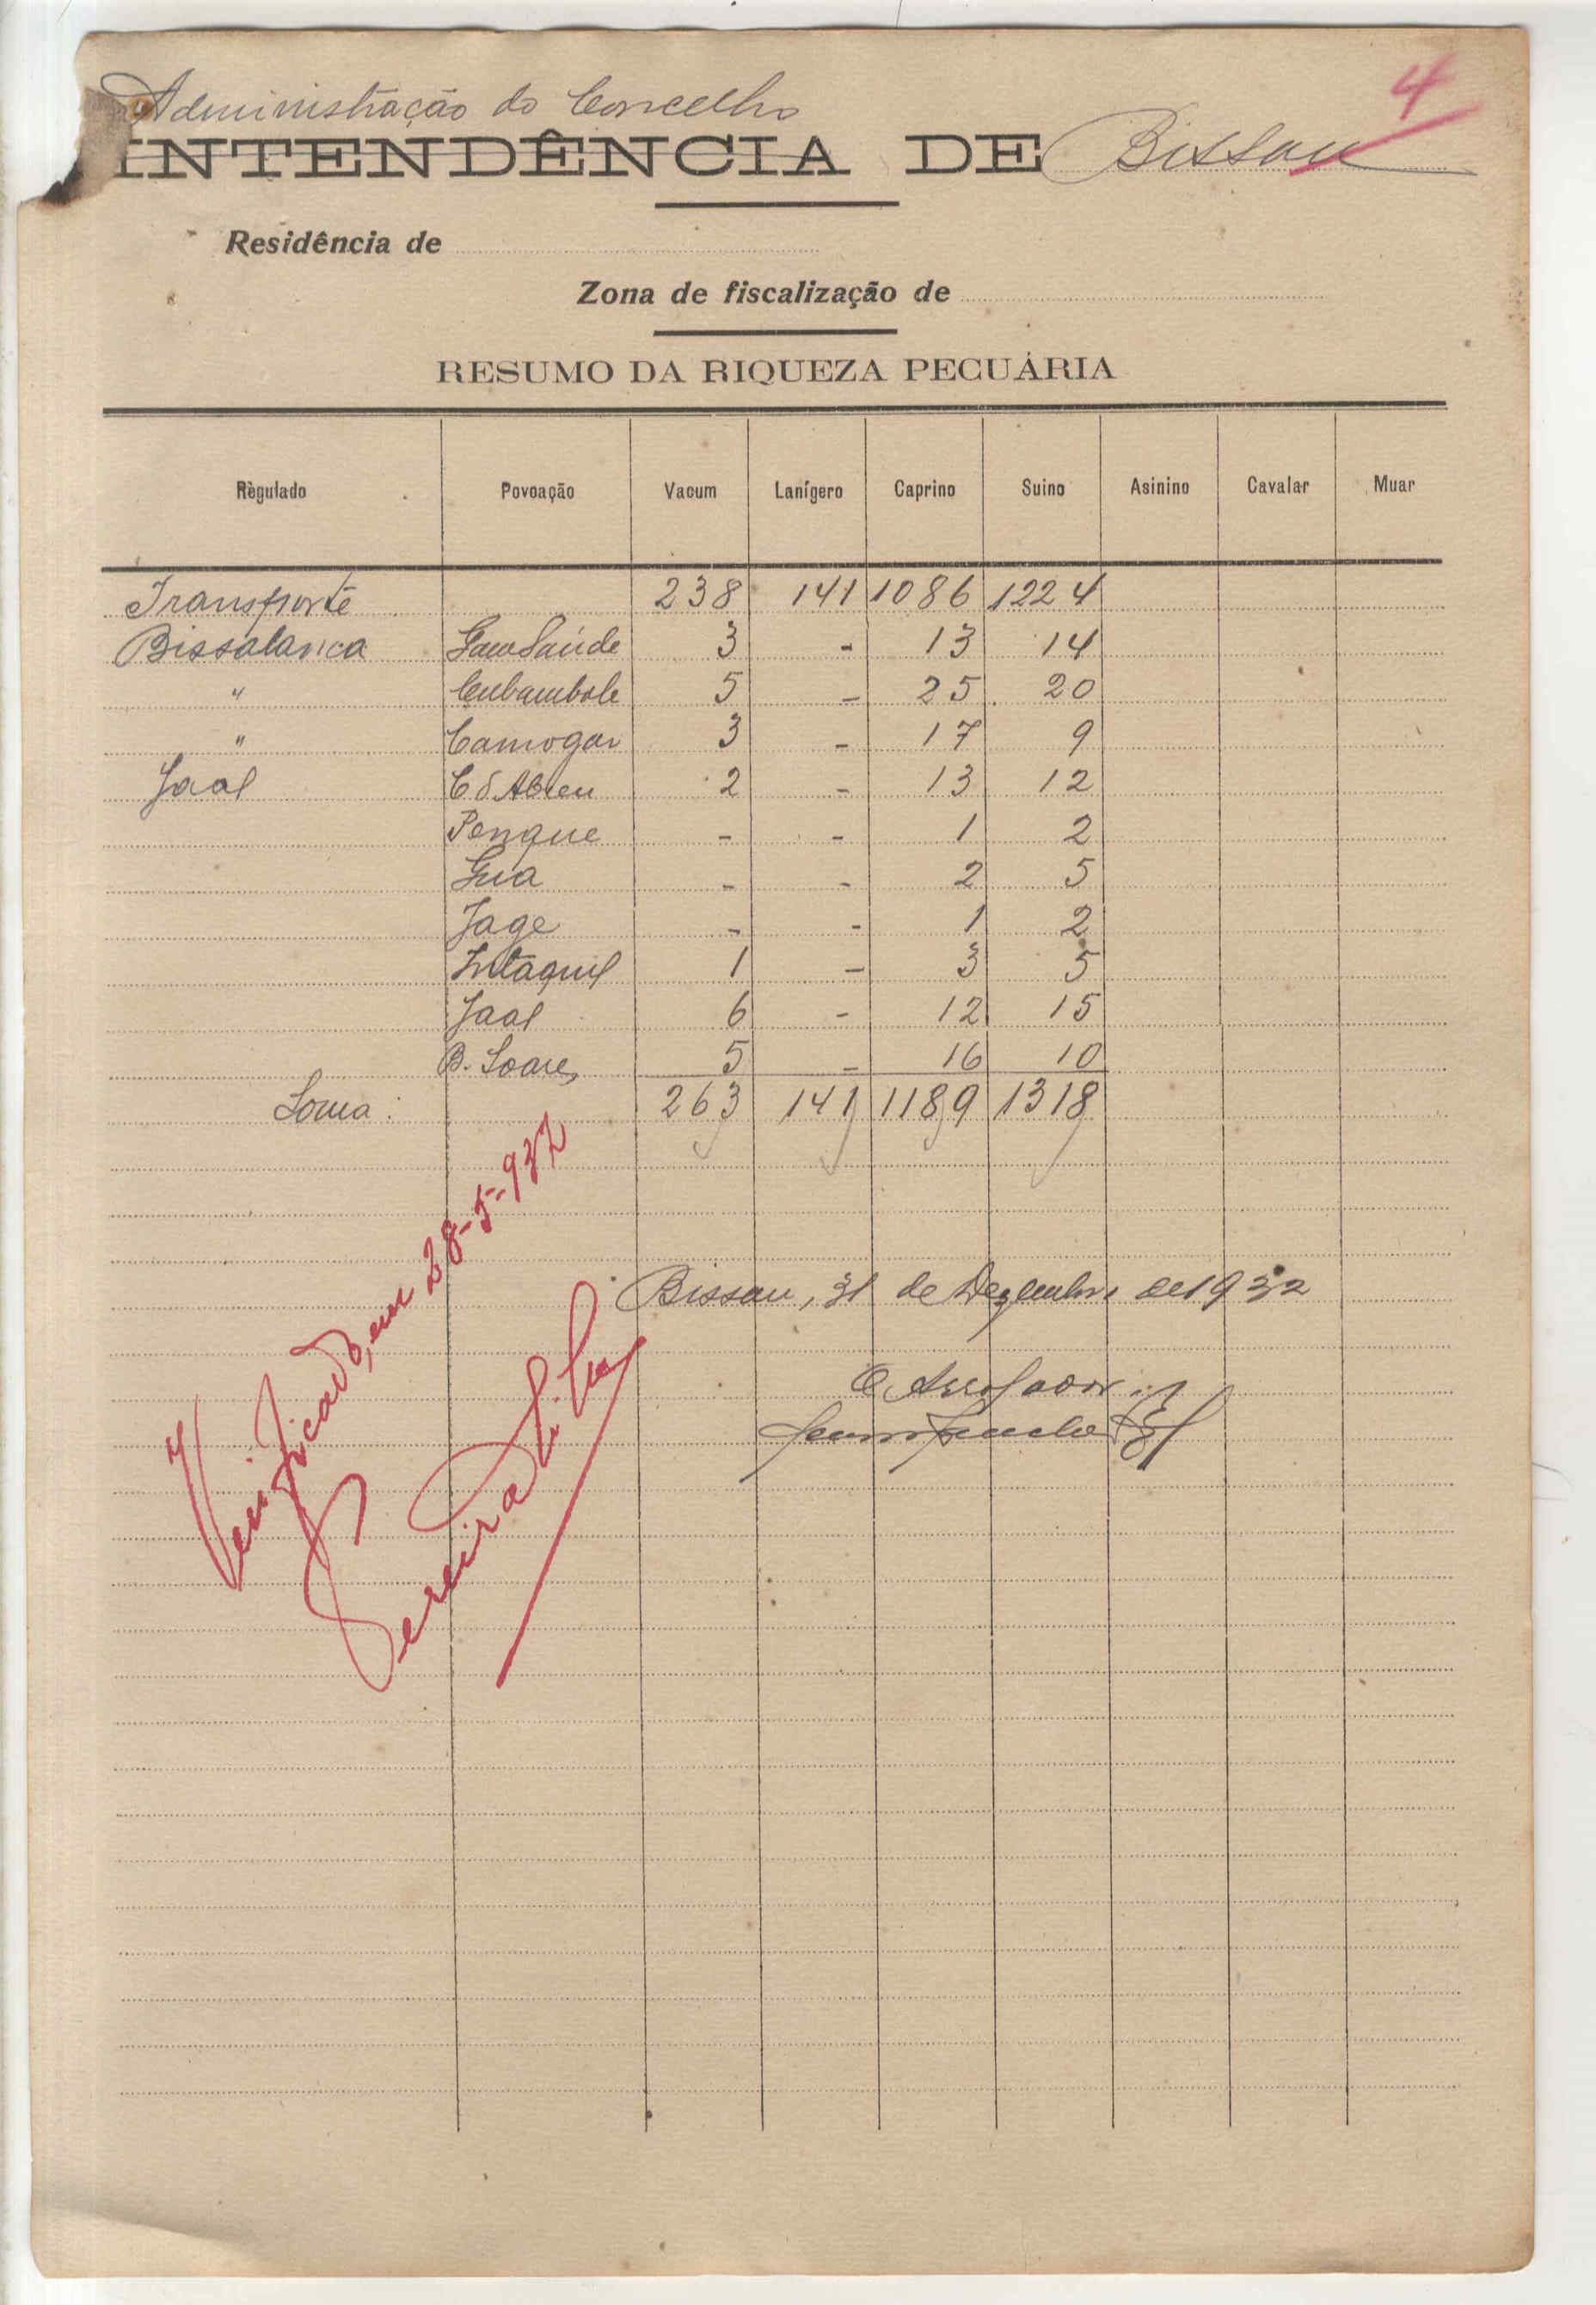 4
Administração do Concelho
INTENDÊNCIA DE Bissau
Residência de
Zona de fiscalização de
RESUMO DA RIQUEZA PECUÁRIA
Règulado Povoação Vacum Lanígero Caprino Suino Asinino Cavalar Muar
Transporte 238 141 1086 1224
Bissalanca 3 - 13 14
" 5 - 25 20
" Camogar 3 - 17 9
Jaal C d'Abreu 2 - 13 12
Penque - - 1 2
Guá - - 2 5
Jage - - 1 2
Intaquil 1 - 3 5
Jaal 6 - 12 15
B. Soares 5 - 16 10
Soma: 263 141 1189 1318
Bissau, 31 de Dezembro de 1932
O Arrolador
Verificado, em 28-5-932
Pereira